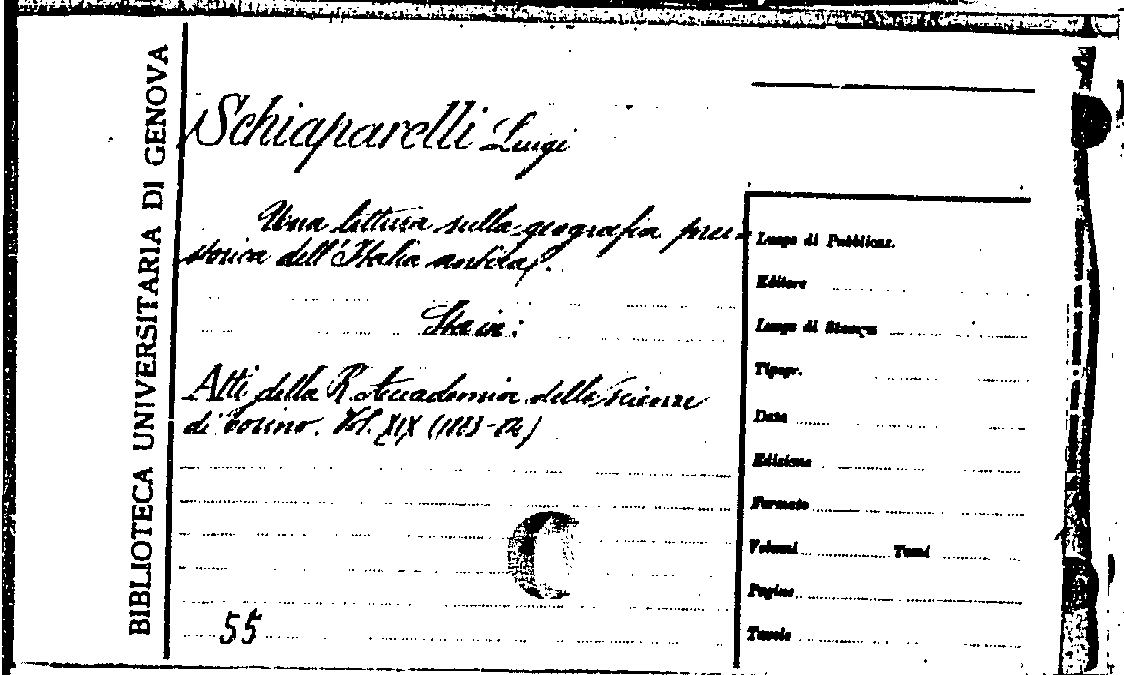 BIBLIOTECA UNIVERSITARIA DI GENOVA
Schiaparelli Luigi
Una lettura sulla geografia prei=
storica dell'Italia antica.
Sta in:
Atti della R. Accademia delle scienze
di torino. Vol. XIX (1883-84)
55
Luogo di Pubblicaz.
Editore
Luogo di Stampa
Tipogr.
Data
Edizione
Formato
Volumi Tomi
Pagine
Tavole